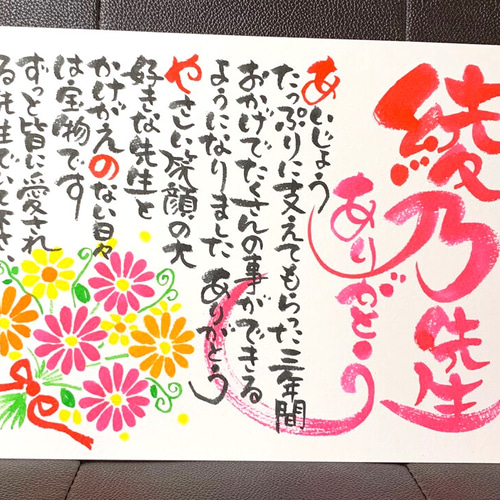 綾乃先生
ありがとう
あいじょう
たっぷりに支えてもらった三年間
おかげでたくさんの事ができる
ようになりました ありがとう
やさしい笑顔の大
好きな先生と
かけがえのない日々
は宝物です
ずっと皆に愛され
る先生でいて下さい